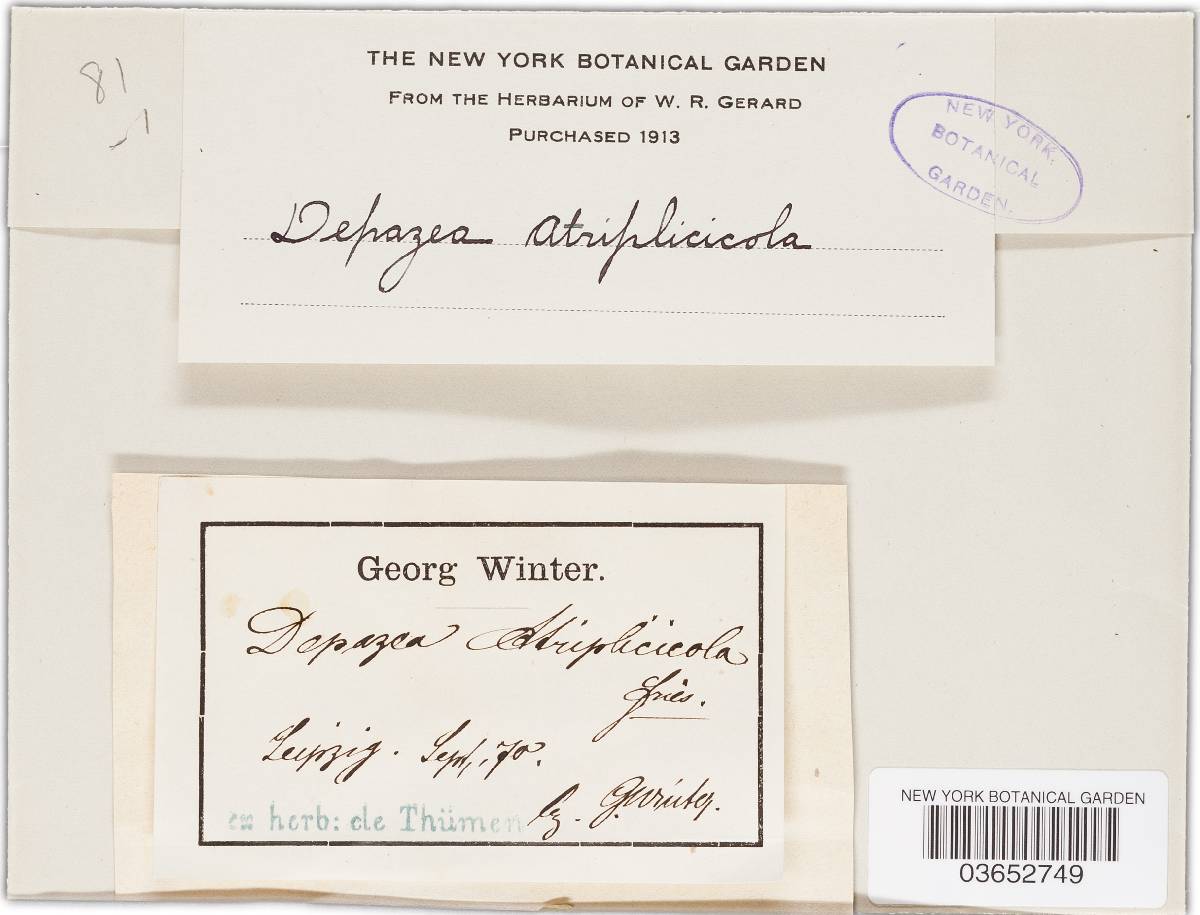 81
-1
THE NEW YORK BOTANICAL GARDEN
FROM THE HERBARIUM OF W. R. GERARD
PURCHASED 1913
NEW YORK.
BOTANICAL
GARDEN.
Depazea atriplicicola
Georg Winter.
Depazea Atriplicicola
Fries.
Leipzig. Sept. 70.
lg. G. Winter.
ex herb: de Thümen
NEW YORK BOTANICAL GARDEN
03652749